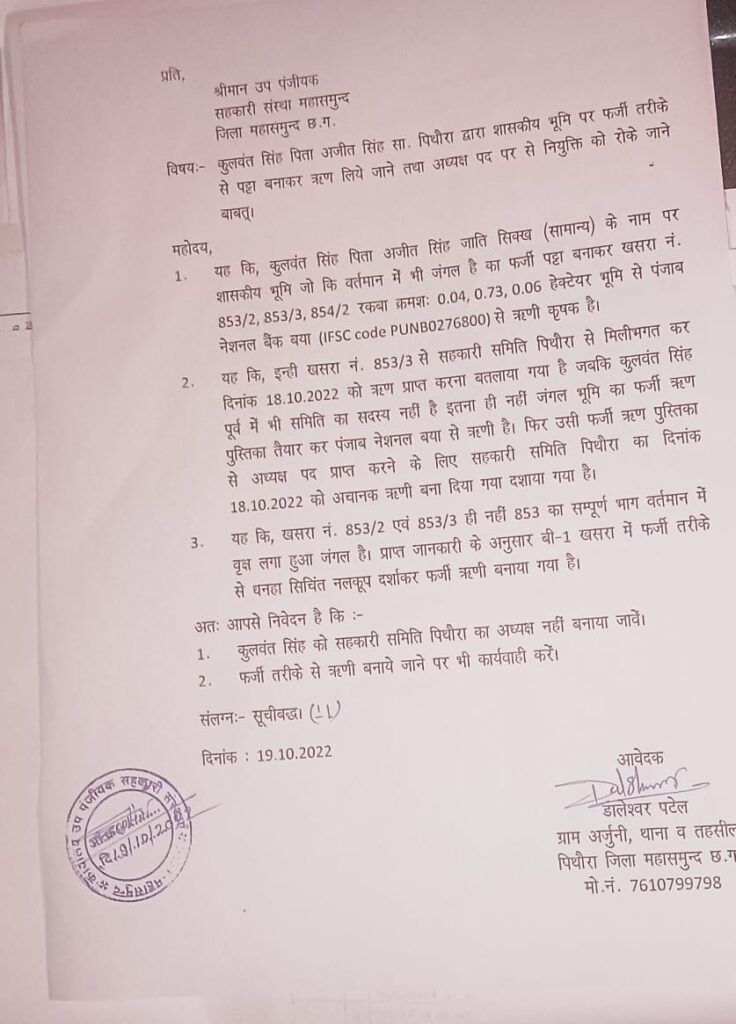 प्रति,
श्रीमान उप पंजीयक
सहकारी संस्था महासमुन्द
जिला महासमुन्द छ.ग.
विषयः- कुलवंत सिंह पिता अजीत सिंह सा. पिथौरा द्वारा शासकीय भूमि पर फर्जी तरीके
से पट्टा बनाकर ऋण लिये जाने तथा अध्यक्ष पद पर से नियुक्ति को रोके जाने
बाबत्।
महोदय,
1. यह कि, कुलवंत सिंह पिता अजीत सिंह जाति सिक्ख (सामान्य) के नाम पर
शासकीय भूमि जो कि वर्तमान में भी जंगल है का फर्जी पट्टा बनाकर खसरा नं.
853/2, 853/3, 854/2 रकबा क्रमशः 0.04, 0.73, 0.06 हेक्टेयर भूमि से पंजाब
नेशनल बैंक बया (IFSC code PUNB0276800) से ऋणी कृषक है।
2. यह कि, इन्ही खसरा नं. 853/3 से सहकारी समिति पिथौरा से मिलीभगत कर
दिनांक 18.10.2022 को ऋण प्राप्त करना बतलाया गया है जबकि कुलवंत सिंह
पूर्व में भी समिति का सदस्य नहीं है इतना ही नहीं जंगल भूमि का फर्जी ऋण
पुस्तिका तैयार कर पंजाब नेशनल बया से ऋणी है। फिर उसी फर्जी ऋण पुस्तिका
से अध्यक्ष पद प्राप्त करने के लिए सहकारी समिति पिथौरा का दिनांक
18.10.2022 को अचानक ऋणी बना दिया गया दशाया गया है।
3. यह कि, खसरा नं. 853/2 एवं 853/3 ही नहीं 853 का सम्पूर्ण भाग वर्तमान में
वृक्ष लगा हुआ जंगल है। प्राप्त जानकारी के अनुसार बी-1 खसरा में फर्जी तरीके
से धनहा सिचिंत नलकूप दर्शाकर फर्जी ऋणी बनाया गया है।
अतः आपसे निवेदन है कि :-
1. कुलवंत सिंह को सहकारी समिति पिथौरा का अध्यक्ष नहीं बनाया जावें।
2. फर्जी तरीके से ऋणी बनाये जाने पर भी कार्यवाही करें।
संलग्नः- सूचीबद्ध। (11)
दिनांक : 19.10.2022
आवेदक
डालेश्वर पटेल
ग्राम अर्जुनी, थाना व तहसील
पिथौरा जिला महासमुन्द छ.ग
मो.नं. 7610799798
कार्यालय उप पंजीयक सहकारी संस्थाएं
महासमुन्द